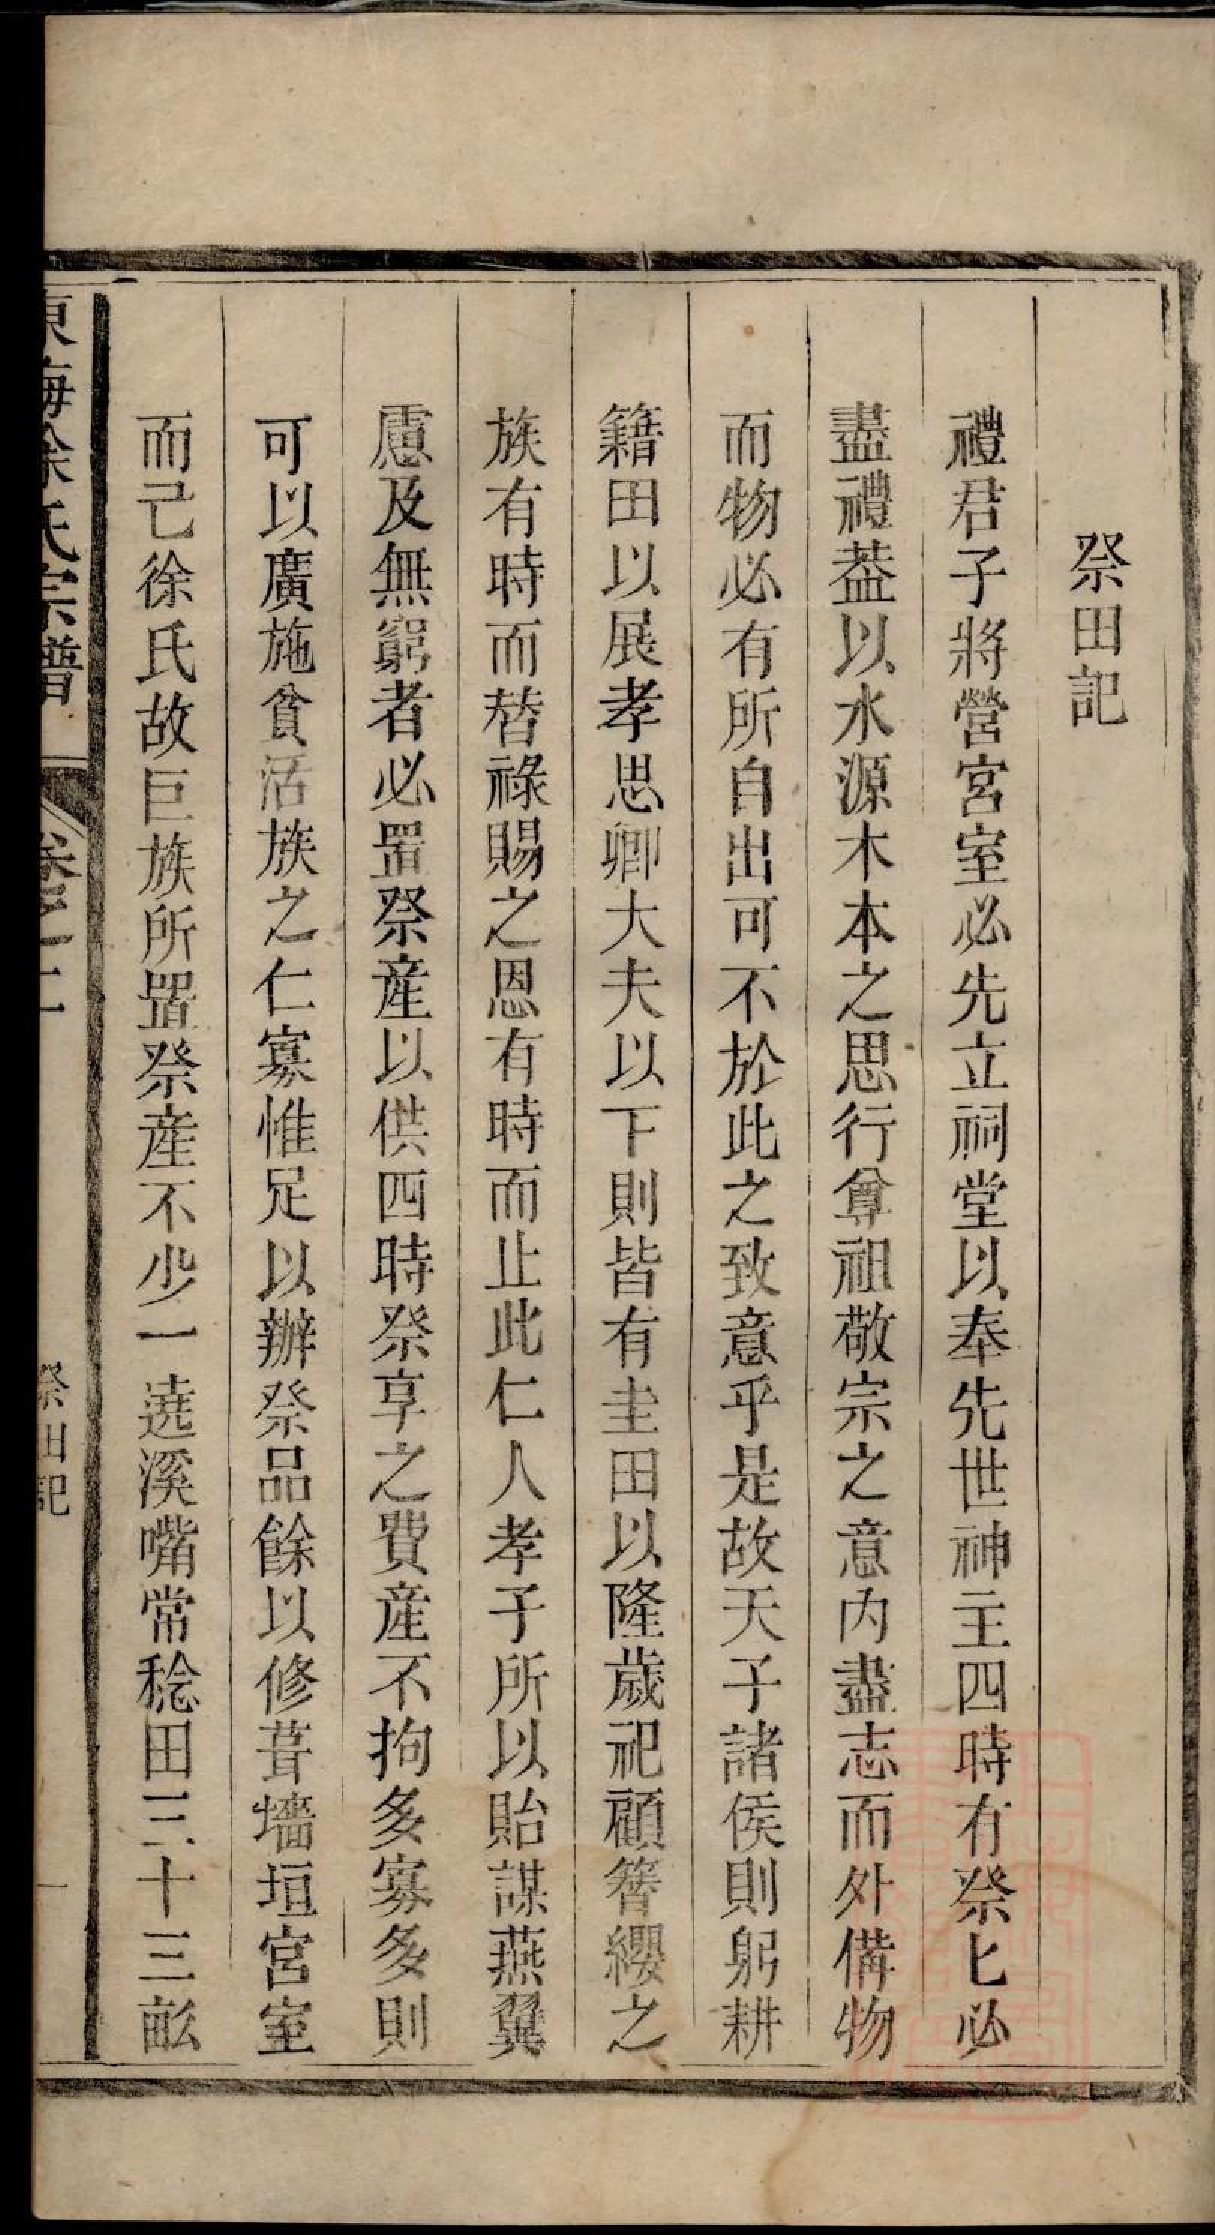 祭田記
禮君子將營宮室必先立祠堂以奉先世神主四時有祭匕必
盡禮葢以水源木本之思行尊祖敬宗之意内盡志而外備物
而物必有所自出可不於此之致意乎是故天子諸侯則躬耕
籍田以展孝思卿大夫以下則皆有圭田以隆歲祀顧簪纓之
族有時而替祿賜之恩有時而止此仁人孝子所以貽謀燕翼
慮及無窮者必置祭産以供四時祭享之費産不拘多寡多則
可以廣施貧活族之仁寡惟足以辦祭品餘以修葺墻垣宮室
而己徐氏故巨族所置祭産不少一遶溪嘴常稔田三十三畝
東海徐氏宗譜
卷之二
祭田記
一